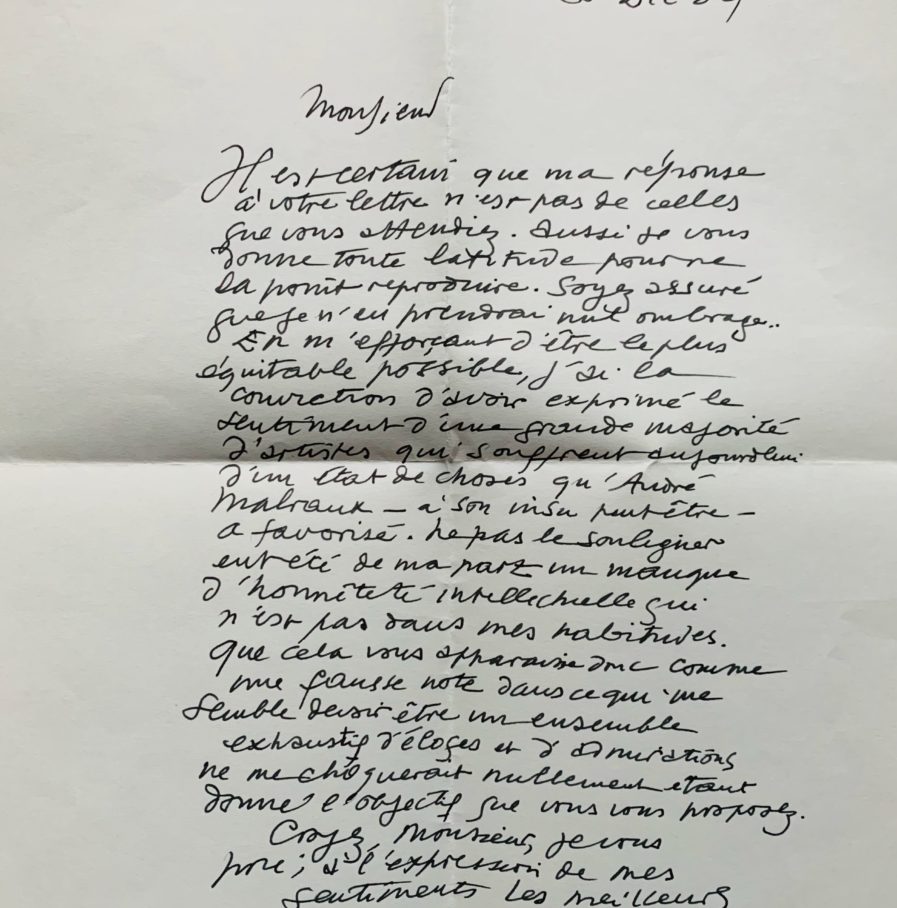 Monsieur
Il est certain que ma réponse
à votre lettre n'est pas de celles
que vous attendiez. Aussi je vous
donne toute latitude pour ne
la point reproduire. Soyez assuré
que je n'en prendrai nul ombrage..
En m'efforçant d'être le plus
équitable possible, j'ai la
conviction d'avoir exprimé le
sentiment d'une grande majorité
d'artistes qui souffrent aujourd'hui
d'un état de choses qu'André
Malraux – à son insu peut être –
a favorisé. Ne pas le souligner
eut été de ma part un manque
d'honnêteté intellectuelle qui
n'est pas dans mes habitudes.
Que cela vous apparaisse donc comme
une fausse note dans ce qui me
semble devoir être un ensemble
exhaustif d'éloges et d'admirations
ne me choquerait nullement étant
donné l'objectif que vous vous proposez.
Croyez, Monsieur, je vous
prie, à l'expression de mes
sentiments les meilleurs